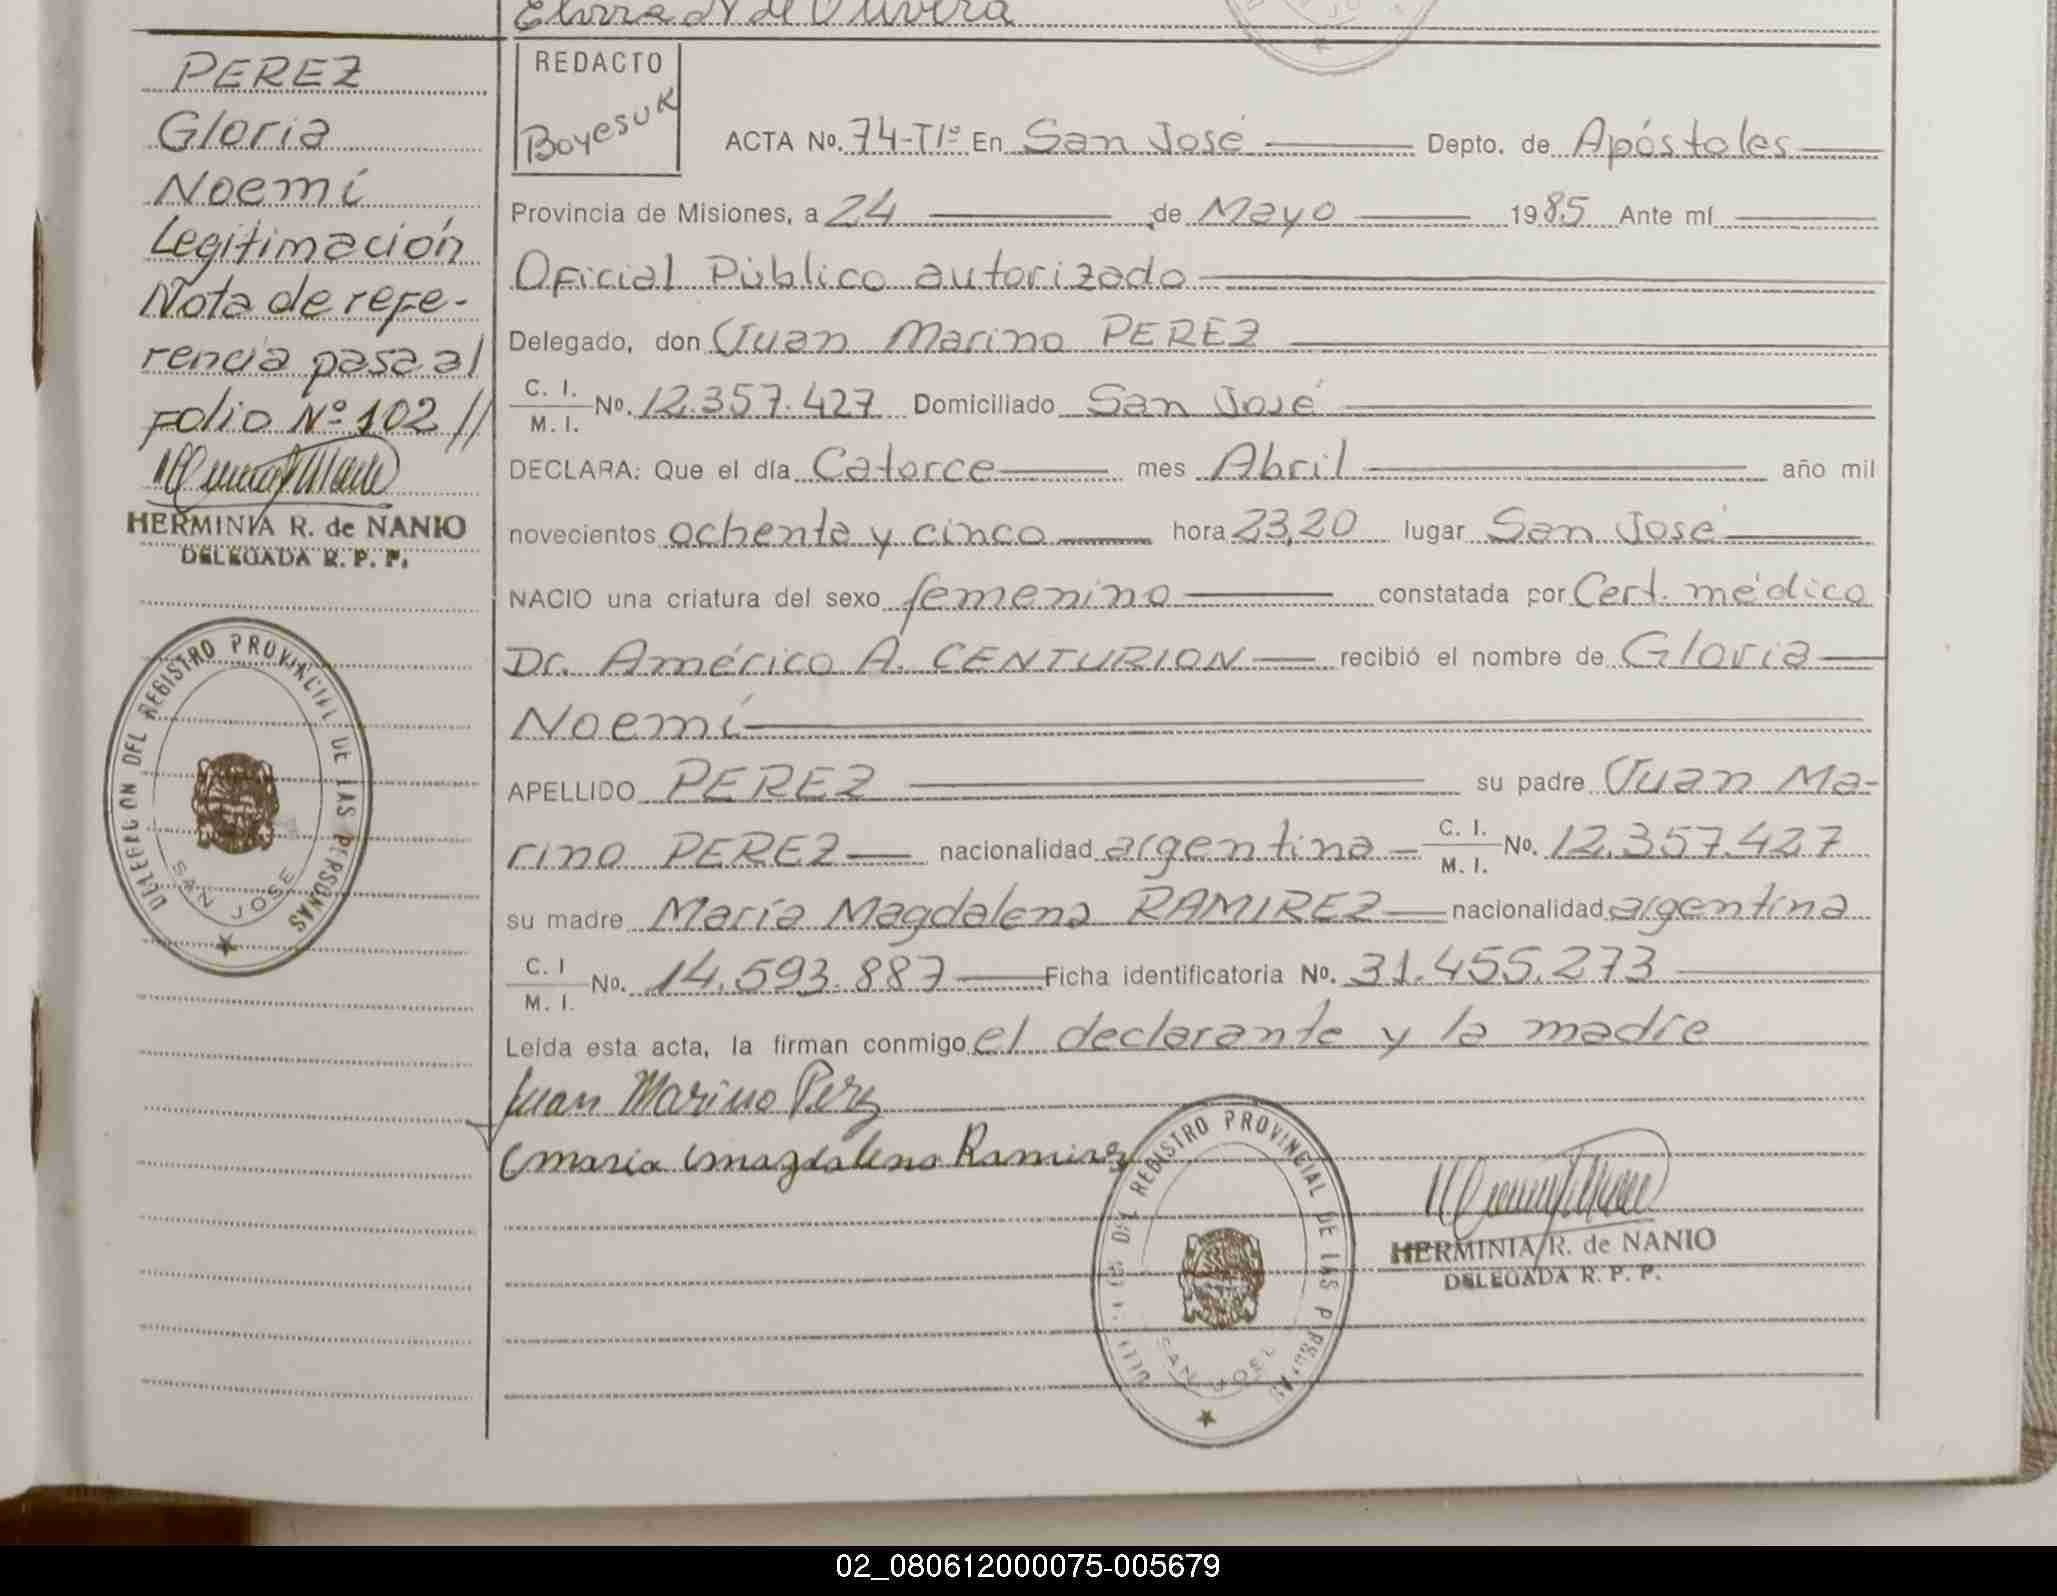 PEREZ
Gloria
Noemí
Legitimación
Nota de refe-
rencia pasa al
Folio Nº 102 //
HERMINIA R. de NANIO
DELEGADA R. P. P.
DELEGACION DEL REGISTRO PROVINCIAL DE LAS PERSONAS
SAN JOSE
de Olivera
REDACTO
Boyesuk
ACTA No. 74-TIº En San José Depto. de Apóstoles
Provincia de Misiones, a 24 de Mayo 1985 Ante mí
Oficial Público autorizado
Delegado, don Juan Marino PEREZ
C. I.
M. I. No. 12.357.427 Domiciliado San José
DECLARA: Que el día Catorce mes Abril año mil
novecientos ochenta y cinco hora 23,20 lugar San José
NACIO una criatura del sexo femenino constatada por Cert. médico
Dr. Américo A. CENTURION recibió el nombre de Gloria
Noemí
APELLIDO PEREZ su padre Juan Ma-
rino PEREZ nacionalidad argentina C. I. M. I. No. 12.357.427
su madre María Magdalena RAMIREZ nacionalidad argentina
C. I
M. I. No. 14.593.887 Ficha identificatoria No. 31.455.273
Leída esta acta, la firman conmigo el declarante y la madre
Juan Marino Perez
Maria Magdalena Ramirez
DEL REGISTRO PROVINCIAL DE LAS PERSONAS
SAN JOSE
HERMINIA R. de NANIO
DELEGADA R. P. P.
02_080612000075-005679